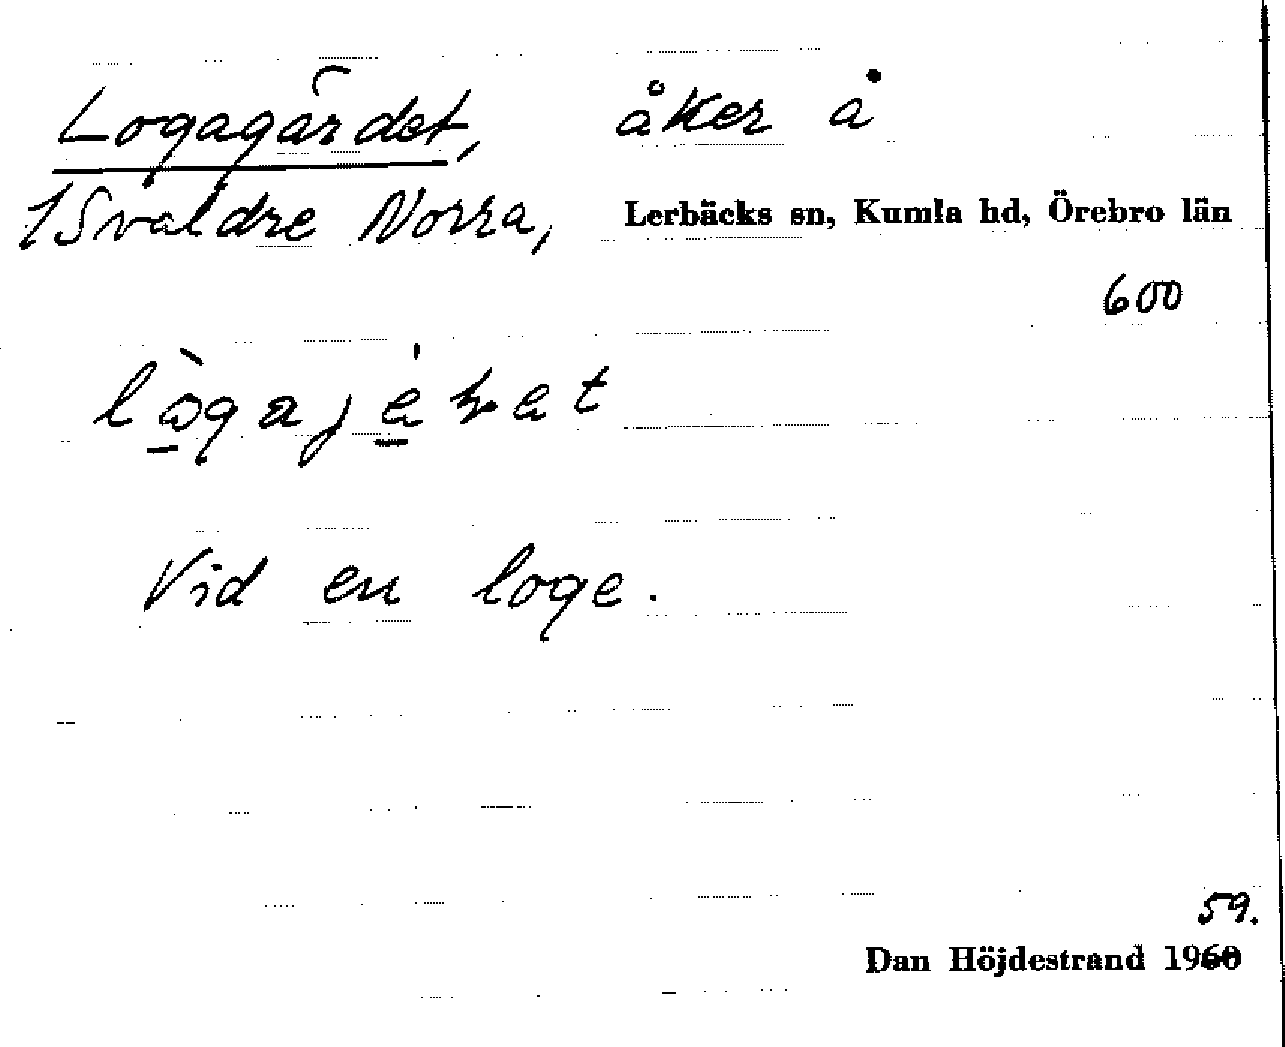 Logagärdet, åker å
1 Svaldre Norra, Lerbäcks sn, Kumla hd, Örebro län
600
Vid en loge.
59.
Dan Höjdestrand 1960